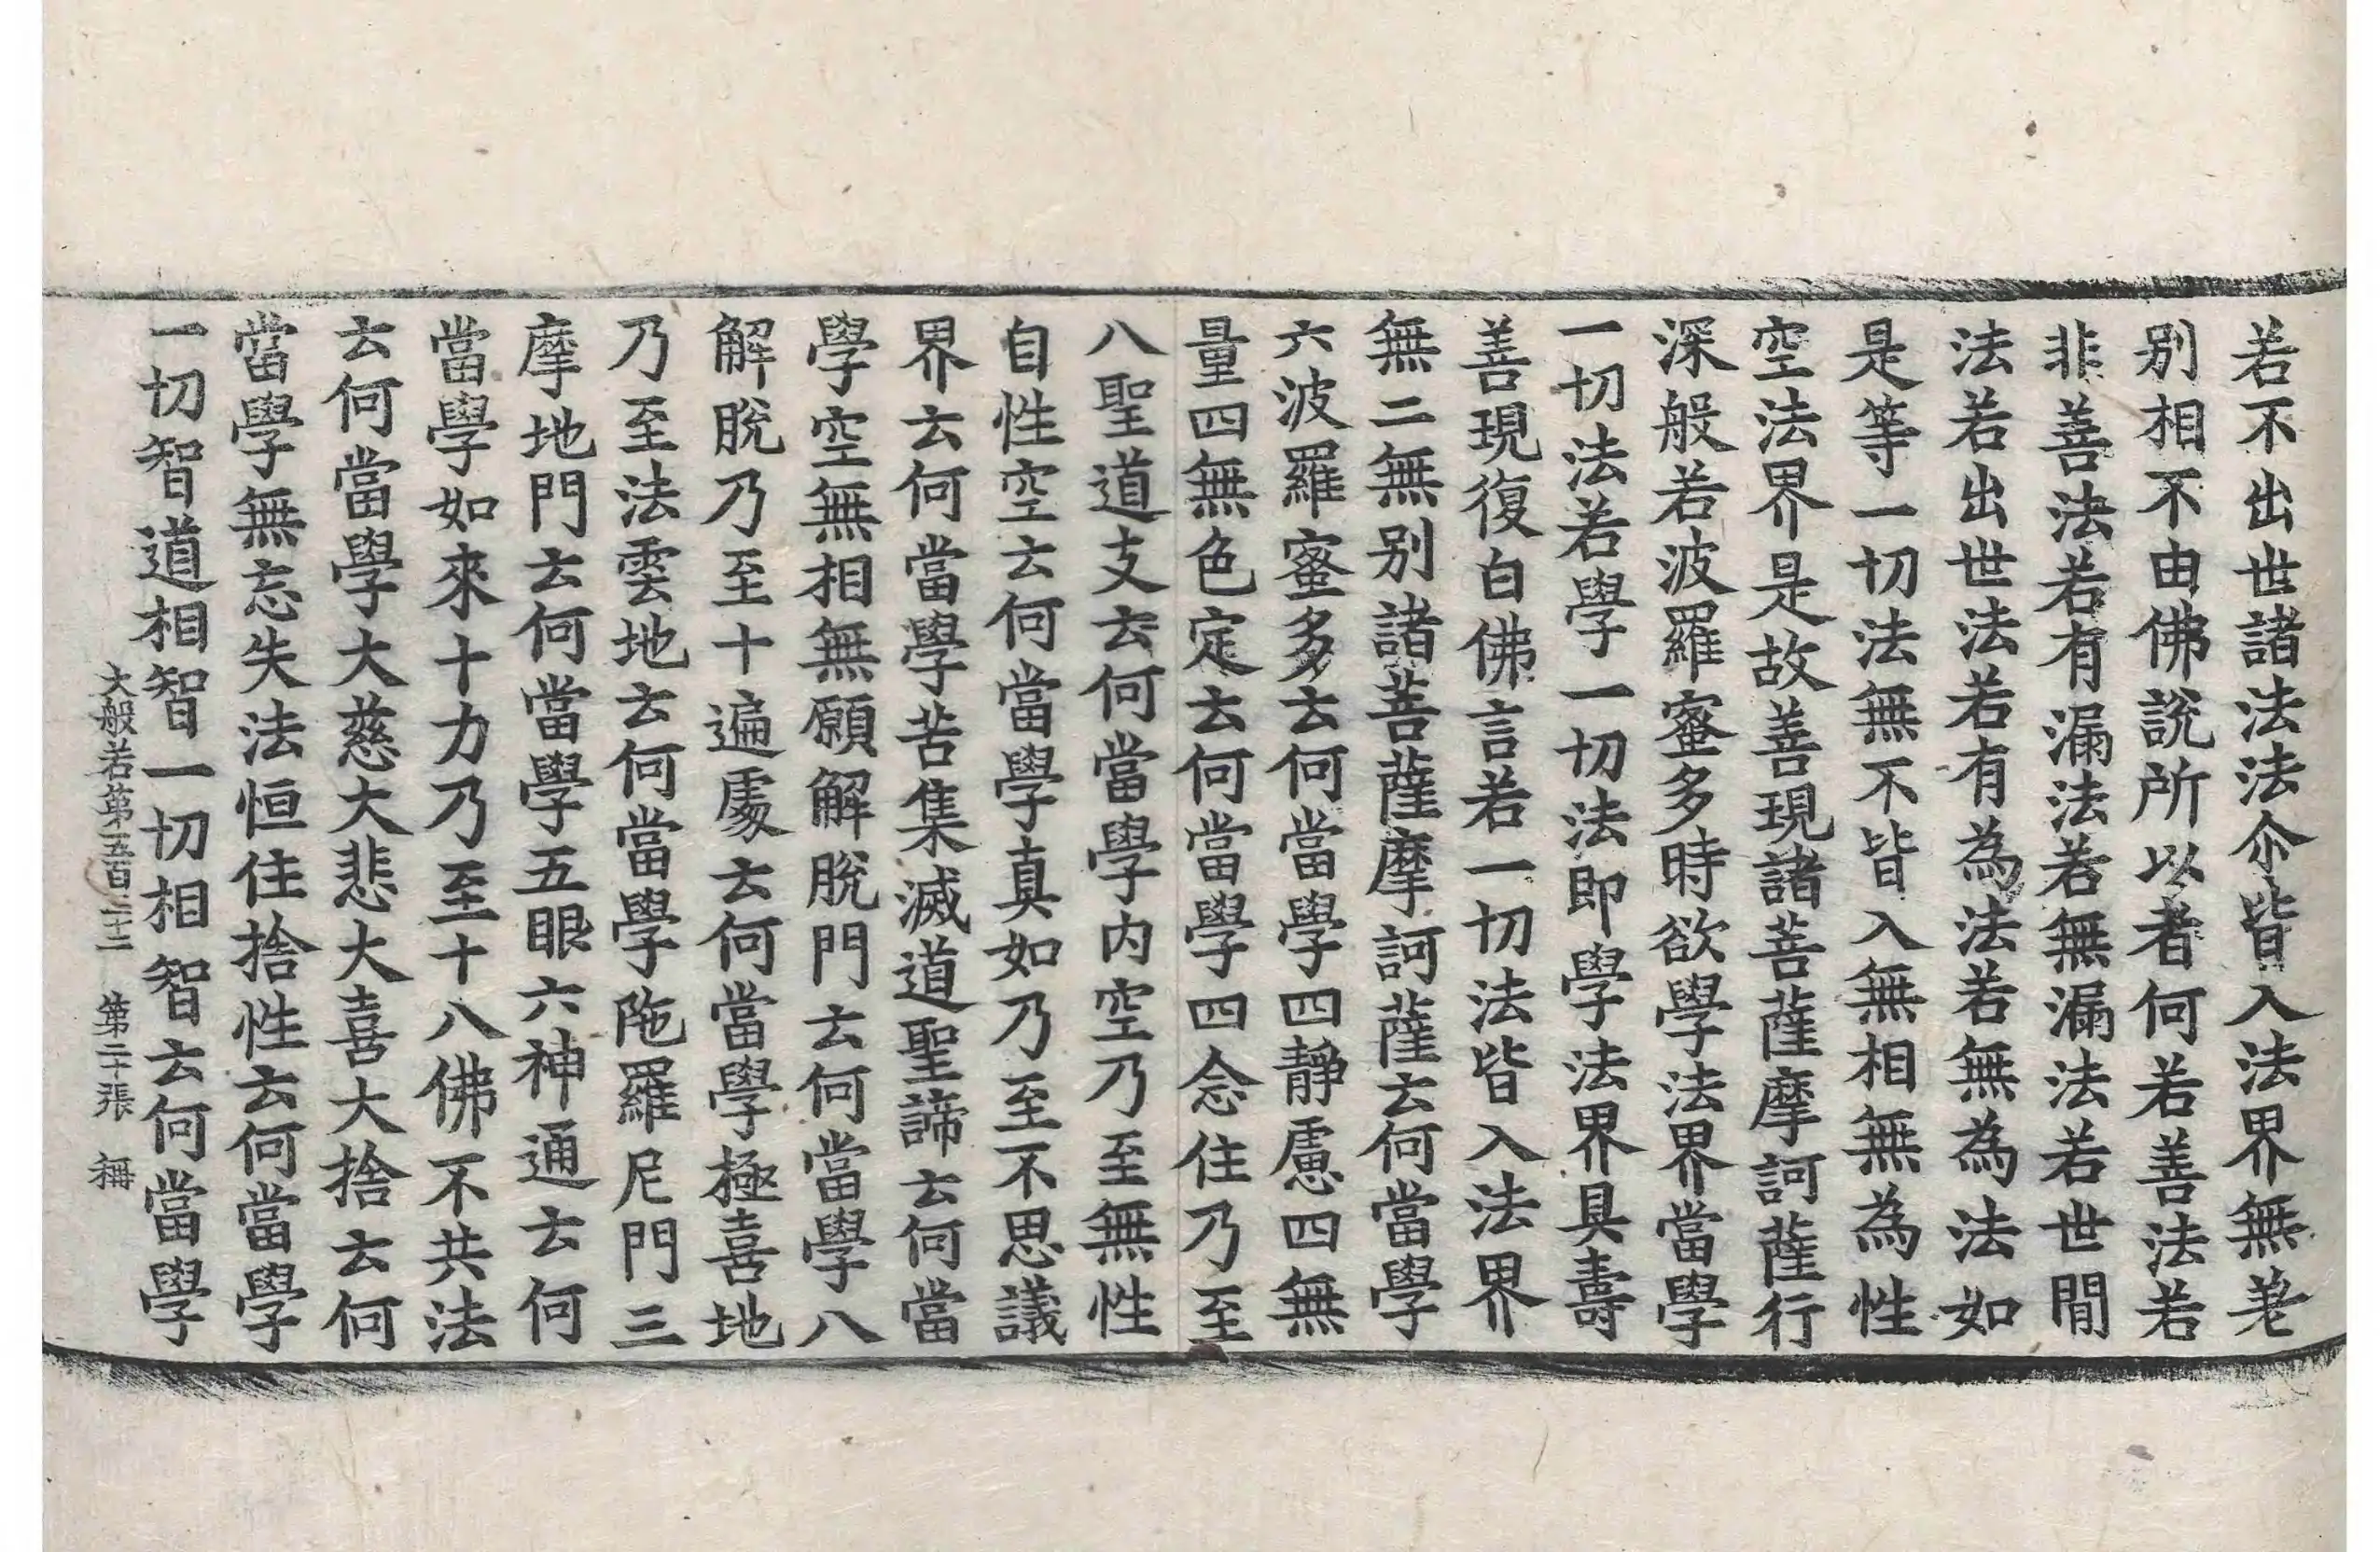 若不出世諸法法尒皆入法界無差
别相不由佛說所以者何若善法若
非善法若有漏法若無漏法若世間
法若出世法若有為法若無為法如
是等一切法無不皆入無相無為性
空法界是故善現諸菩薩摩訶薩行
深般若波羅蜜多時欲學法界當學
一切法若學一切法即學法界具壽
善現復白佛言若一切法皆入法界
無二無别諸菩薩摩訶薩云何當學
六波羅蜜多云何當學四靜慮四無
量四無色定云何當學四念住乃至
八聖道支云何當學内空乃至無性
自性空云何當學真如乃至不思議
界云何當學苦集滅道聖諦云何當
學空無相無願解脫門云何當學八
解脫乃至十遍處云何當學極喜地
乃至法雲地云何當學陁羅尼門三
摩地門云何當學五眼六神通云何
當學如來十力乃至十八佛不共法
云何當學大慈大悲大喜大捨云何
當學無忘失法恒住捨性云何當學
一切智道相智一切相智云何當學
大般若第五百 第二十張